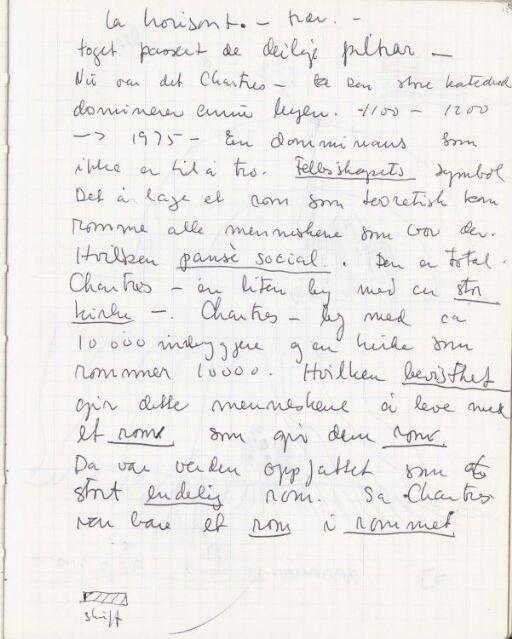 La horisont. – trær. –
toget passert de deilige piltrær –
Nu var det Chartres – den store katedral
dominerer ennu byen. – 1100 – 1200
–> 1975 – En dominans som
ikke er til å tro. Fellsskapets symbol
Det å lage et rom som teoretisk kan
romme alle menneskene som bor der.
Hvilken pansè social. . Den er total.
Chartres – en liten by med en stor
kirke –. Chartres – by med ca
10 000 innbyggere og en kirke som
rommer 10000. Hvilken bevisthet
gir dette menneskene å leve med
et rom som gir dem rom
Da var verden oppfattet som et
stort endelig rom. Så Chartres
var bare et rom i rommet
skift